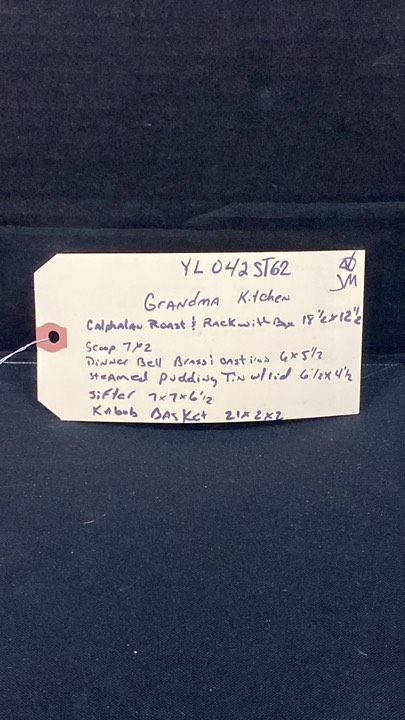 YL042ST62
JM
Grandma Kitchen
Calphalan Roast & Rack with Box 18 1/2 x 12 1/2
Scoop 7x2
Dinner Bell Brass & cast iron 6x5 1/2
Steamed Pudding Tin w/lid 6 1/2 x 4 1/2
Sifter 7x7x6 1/2
Kabob Basket 21x2x2